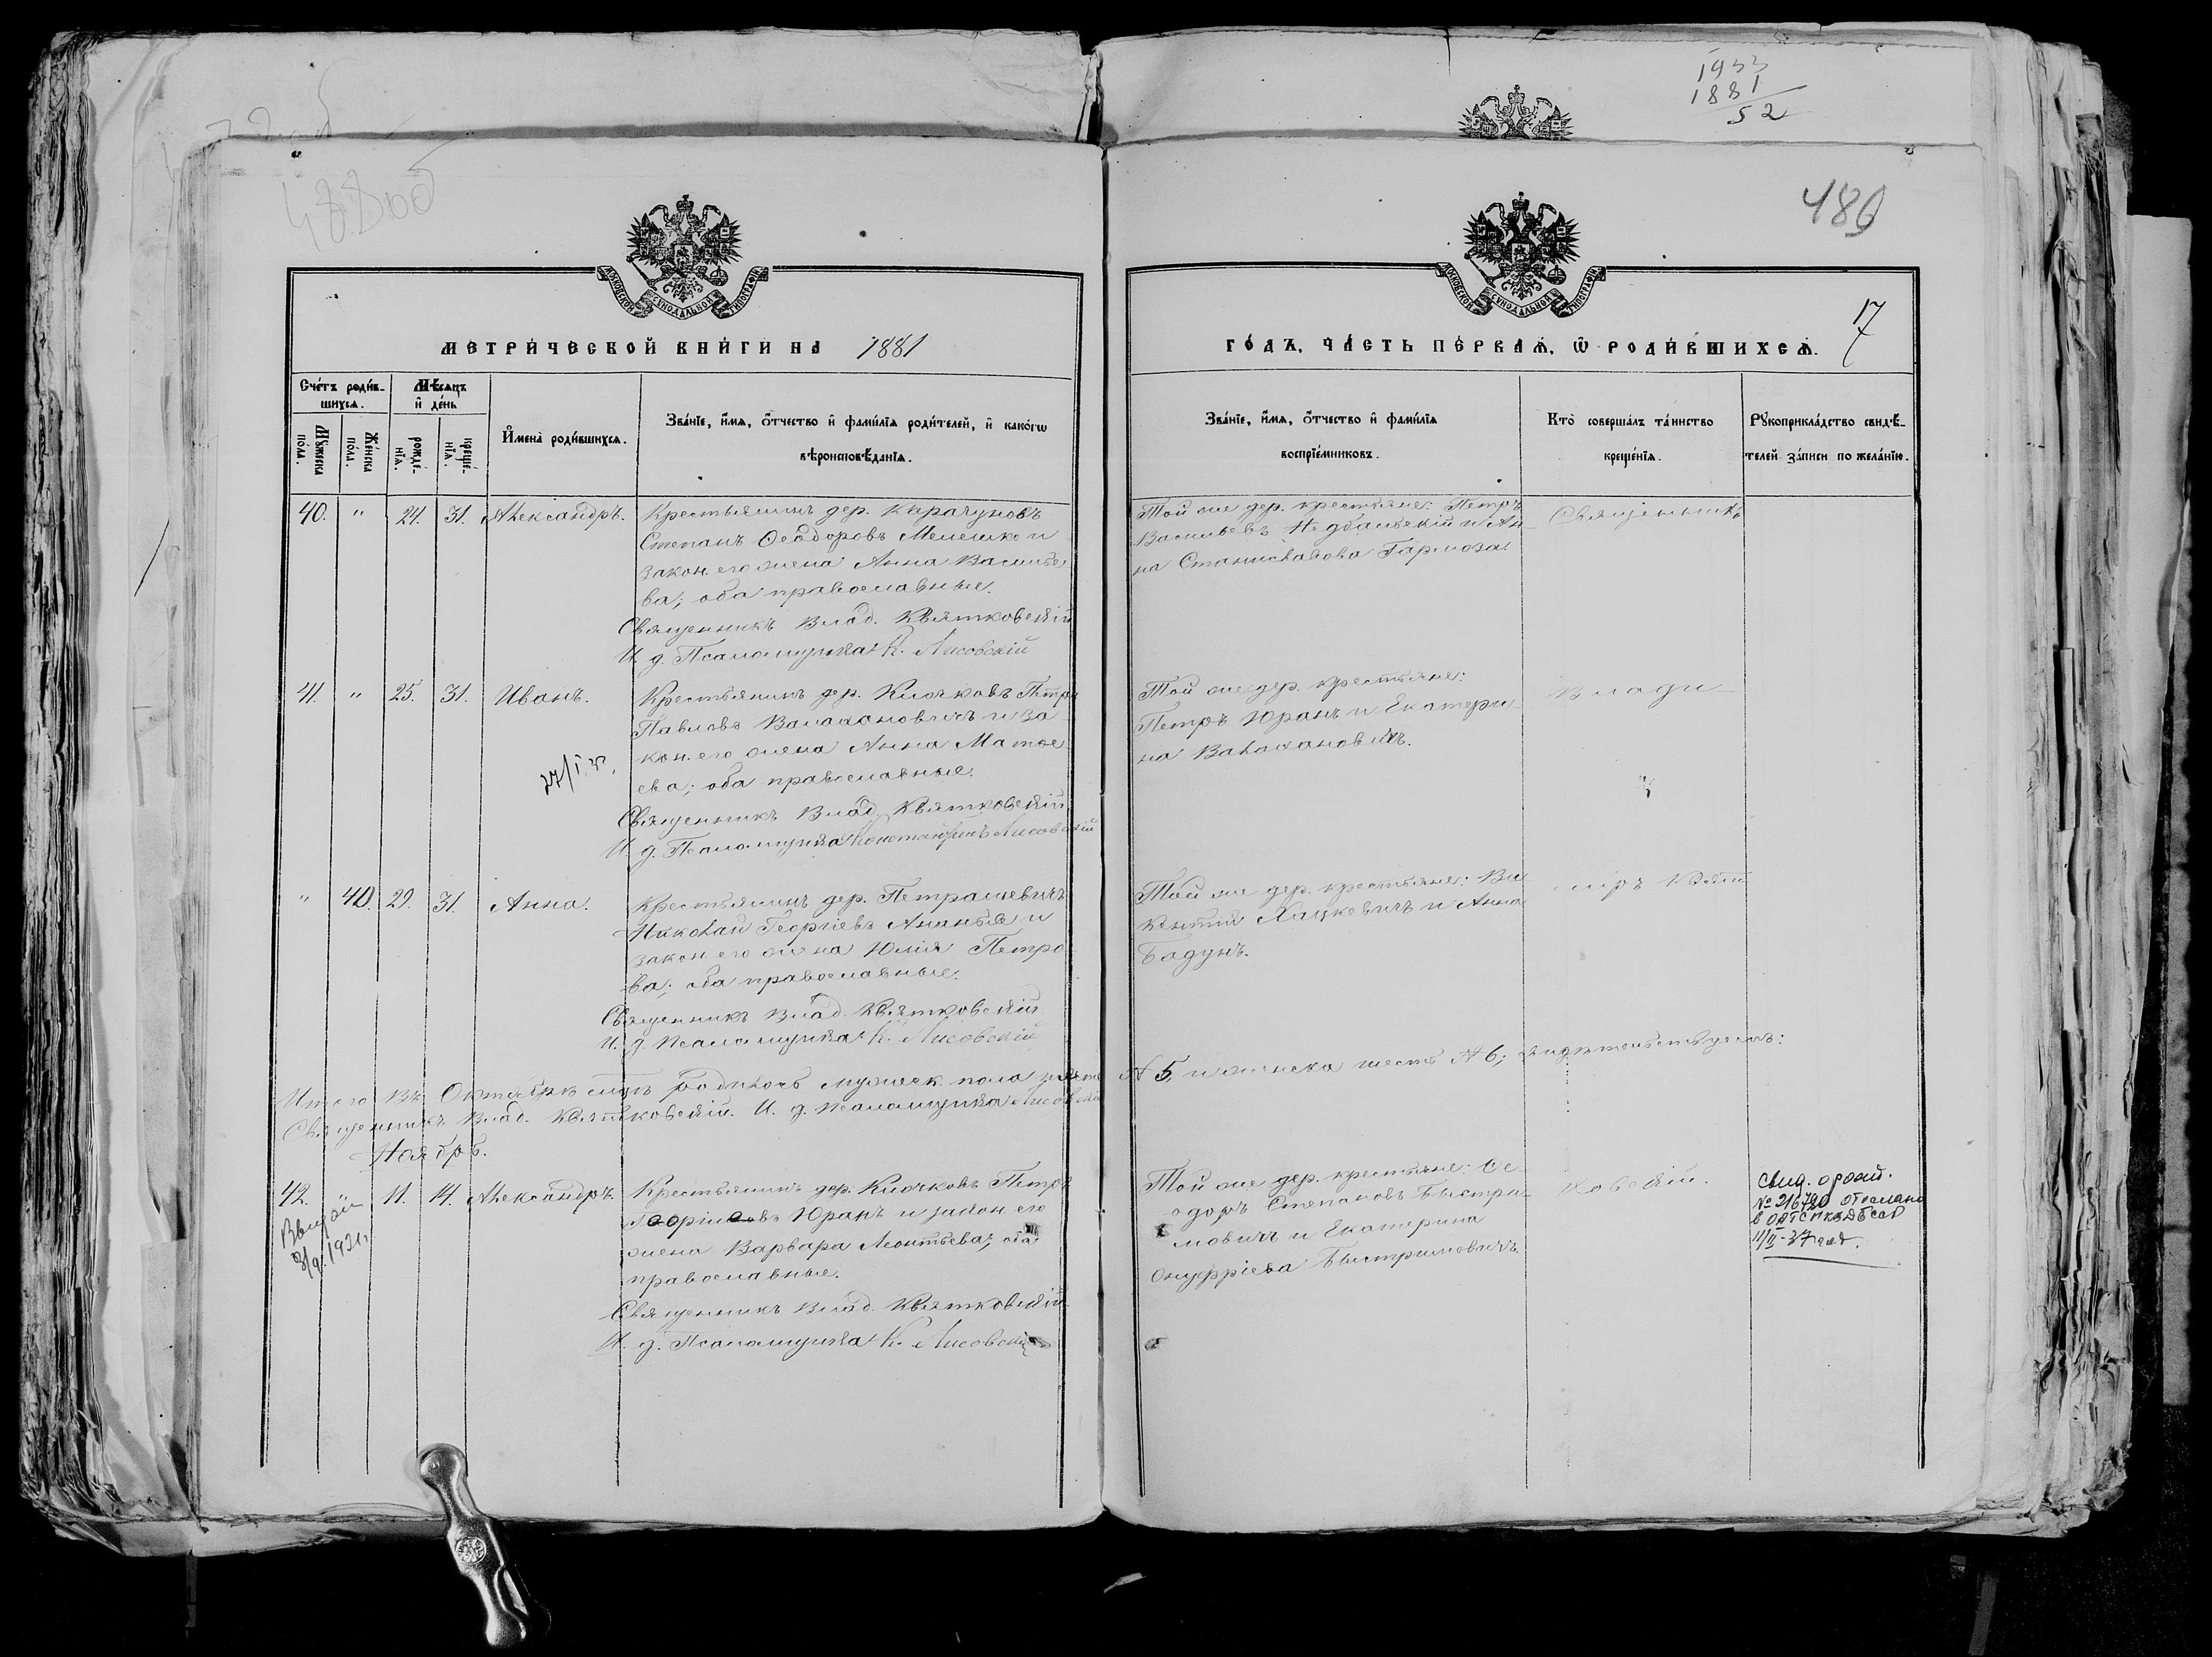 1933
1881
52
480
МОСКОВСКОЙ СѴНОДАЛЬНОЙ ТИПОГРАФІИ
МОСКОВСКОЙ СѴНОДАЛЬНОЙ ТИПОГРАФІИ
17
МЕТРИ́ЧЕСКОЙ КНИ́ГИ НА 1881
ГО́ДЪ, ЧА́СТЬ ПЕ́РВАЯ, Ѡ РОДИ́ВШИХСЯ.
Сче́тъ роди́вшихся.
Мѣ́сяцъ и де́нь
Имена̀ роди́вшихся.
Зва́нїе, и́мя, о́тчество и фами́лїя роди́телей, и како́гѡ
вѣроисповѣ́данїя.
Му́жеска по́ла.
Же́нска по́ла.
рожде́нїя.
креще́нїя.
Зва́нїе, и́мя, о́тчество и фами́лїя
воспрїе́мниковъ.
Кто̀ соверша́лъ та́инство
креще́нїя.
Рукоприкла́дство свидѣ́-
телей за́писи по жела́нїю.
40. " 24. 31. Александръ.
Крестьянинъ дер. Карачуновъ
Степанъ Ѳеодоровъ Мелешко и
закон. его жена Анна Василье
ва; оба православные.
Священникъ Влад. Квятковскій
И. д. Псаломщика К. Лисовскій
Той же дер. крестьяне: Петръ
Васильевъ и Ан
на Станиславова Гармоза.
Священникъ
41. " 25. 31. Иванъ.
Крестьянинъ дер. Клочковъ Петръ
Павловъ Валахановичъ и за
кон. его жена Анна Матѳе
ева; оба православные.
Священникъ Влад. Квятковскій
И. д. Псаломщика Константинъ Лисовскій
Той же дер. крестьяне:
Петръ Юранъ и Екатери-
на Валахановичъ.
Влади-
" 40. 29. 31. Анна.
Крестьянинъ дер. Петрашевичъ
Николай Георгіевъ и
закон. его жена Юлія Петро
ва; оба православные.
Священникъ Влад. Квятковскій
И. д. Псаломщика К. Лисовскій
Той же дер. крестьяне: Ви
кентій Хацкевичъ и Анна
Бадунъ.
міръ Квят
Итого въ Октябрѣ родилось мужеск. пола пять № 5, и женска шесть № 6; свидѣтельствуемъ:
Священникъ Влад. Квятковскій. И. д. псаломщика Лисовскій
Ноябрь.
42. 11. 14. Александръ.
3/9. 1931.
Крестьянинъ дер. Клочковъ Петръ
Юранъ и закон. его
жена Варвара Леонтьева; оба
православные.
Священникъ Влад. Квятковскій
И. д. Псаломщика К. Лисовскій
Той же дер. крестьяне: Ѳе-
одоръ Степановъ Быстри-
мовичъ и Екатерина
Онуфріева Быстримовичъ
ковскій.
Свид. о рожд.
№ 216720 отослано
11/II-37 года.